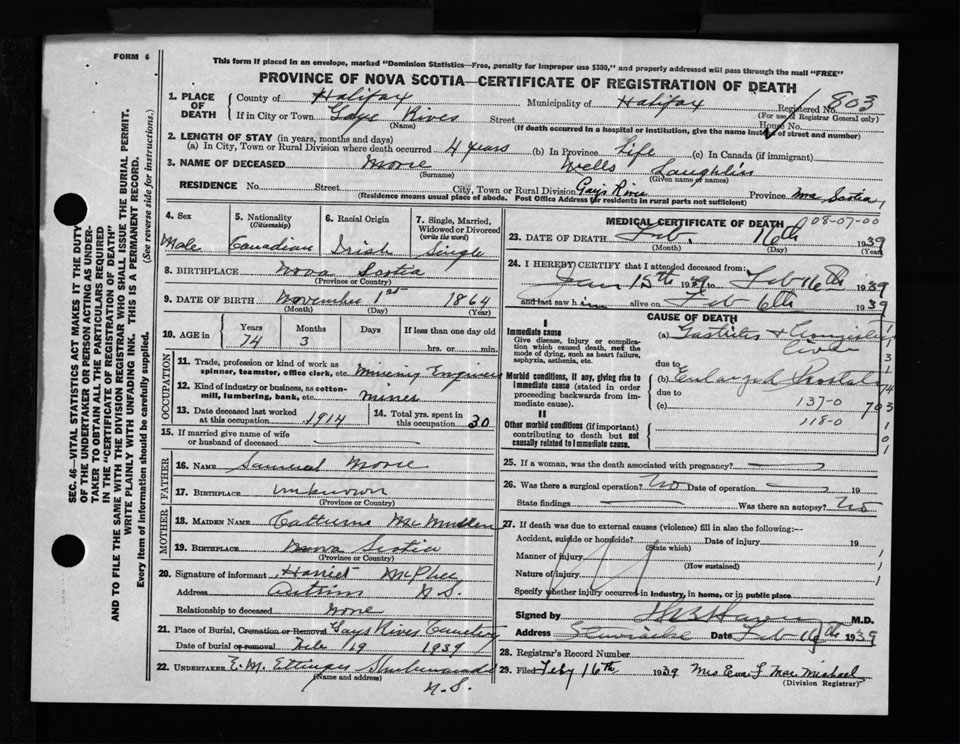 FORM 6
This form if placed in an envelope, marked "Dominion Statistics—Free, penalty for improper use $300," and properly addressed will pass through the mail "FREE"
PROVINCE OF NOVA SCOTIA—CERTIFICATE OF REGISTRATION OF DEATH
SEC. 46—VITAL STATISTICS ACT MAKES IT THE DUTY
OF THE UNDERTAKER OR PERSON ACTING AS UNDER-
TAKER TO OBTAIN ALL THE PARTICULARS REQUIRED
IN THE "CERTIFICATE OF REGISTRATION OF DEATH"
AND TO FILE THE SAME WITH THE DIVISION REGISTRAR WHO SHALL ISSUE THE BURIAL PERMIT.
WRITE PLAINLY WITH UNFADING INK. THIS IS A PERMANENT RECORD.
Every item of information should be carefully supplied. (See reverse side for instructions.)
1. PLACE OF DEATH County of Halifax Municipality of Halifax Registered No. 803
(For use of Registrar General only)
If in City or Town Gays River Street House No.
(Name) (If death occurred in a hospital or institution, give the name instead of street and number)
2. LENGTH OF STAY (in years, months and days)
(a) In City, Town or Rural Division where death occurred 4 years (b) In Province Life (c) In Canada (if immigrant)
3. NAME OF DECEASED Moore Wells Laughlin
(Surname) (Given name or names)
RESIDENCE No. Street City, Town or Rural Division Gays River Province Nova Scotia
(Residence means usual place of abode. Post Office Address for residents in rural parts not sufficient)
4. Sex 5. Nationality (Citizenship) 6. Racial Origin 7. Single, Married, Widowed or Divorced (write the word)
Male Canadian Irish Single
8. BIRTHPLACE Nova Scotia
(Province or Country)
9. DATE OF BIRTH November 1st 1864
(Month) (Day) (Year)
10. AGE in Years Months Days If less than one day old
74 3 hrs. or min.
OCCUPATION
11. Trade, profession or kind of work as spinner, teamster, office clerk, etc. Mining Engineer
12. Kind of industry or business, as cotton-mill, lumbering, bank, etc. Mines
13. Date deceased last worked at this occupation 1914 14. Total yrs. spent in this occupation 30
15. If married give name of wife or husband of deceased
FATHER
16. NAME Samuel Moore
17. BIRTHPLACE Unknown
MOTHER
18. MAIDEN NAME Catherine
19. BIRTHPLACE Nova Scotia
(Province or Country)
20. Signature of informant Harriet McPhee
Address Antrim N.S.
Relationship to deceased None
21. Place of Burial, Cremation or Removal Gays River Cemetery
Date of burial or removal Feb 19 1939
22. UNDERTAKER E. M. Ettinger Shubenacadie
(Name and address) N.S.
MEDICAL CERTIFICATE OF DEATH 08-07-00
23. DATE OF DEATH Feb. 16th 1939
(Month) (Day) (Year)
24. I HEREBY CERTIFY that I attended deceased from:
Jan 15th 1939 to Feb 16th 1939
and last saw him alive on Feb 6th 1939
CAUSE OF DEATH
I
Immediate cause
Give disease, injury or complication which caused death, not the mode of dying, such as heart failure, asphyxia, asthenia, etc.
(a) Gastritis + Liver
due to
Morbid conditions, if any, giving rise to immediate cause (stated in order proceeding backwards from immediate cause).
(b) Enlarged Prostate 74
due to
(c) 137-0 703
II
118-0
Other morbid conditions (if important) contributing to death but not causally related to immediate cause.
25. If a woman, was the death associated with pregnancy?
26. Was there a surgical operation? No Date of operation 19
State findings Was there an autopsy? No
27. If death was due to external causes (violence) fill in also the following:—
Accident, suicide or homicide? Date of injury 19
(State which)
Manner of injury
(How sustained)
Nature of injury
Specify whether injury occurred in industry, in home, or in public place
Signed by M.D.
Address Stewiacke Date Feb 16th 1939
28. Registrar's Record Number
29. Filed Feby 16th 1939 Mrs Eva L MacMichael
(Division Registrar)